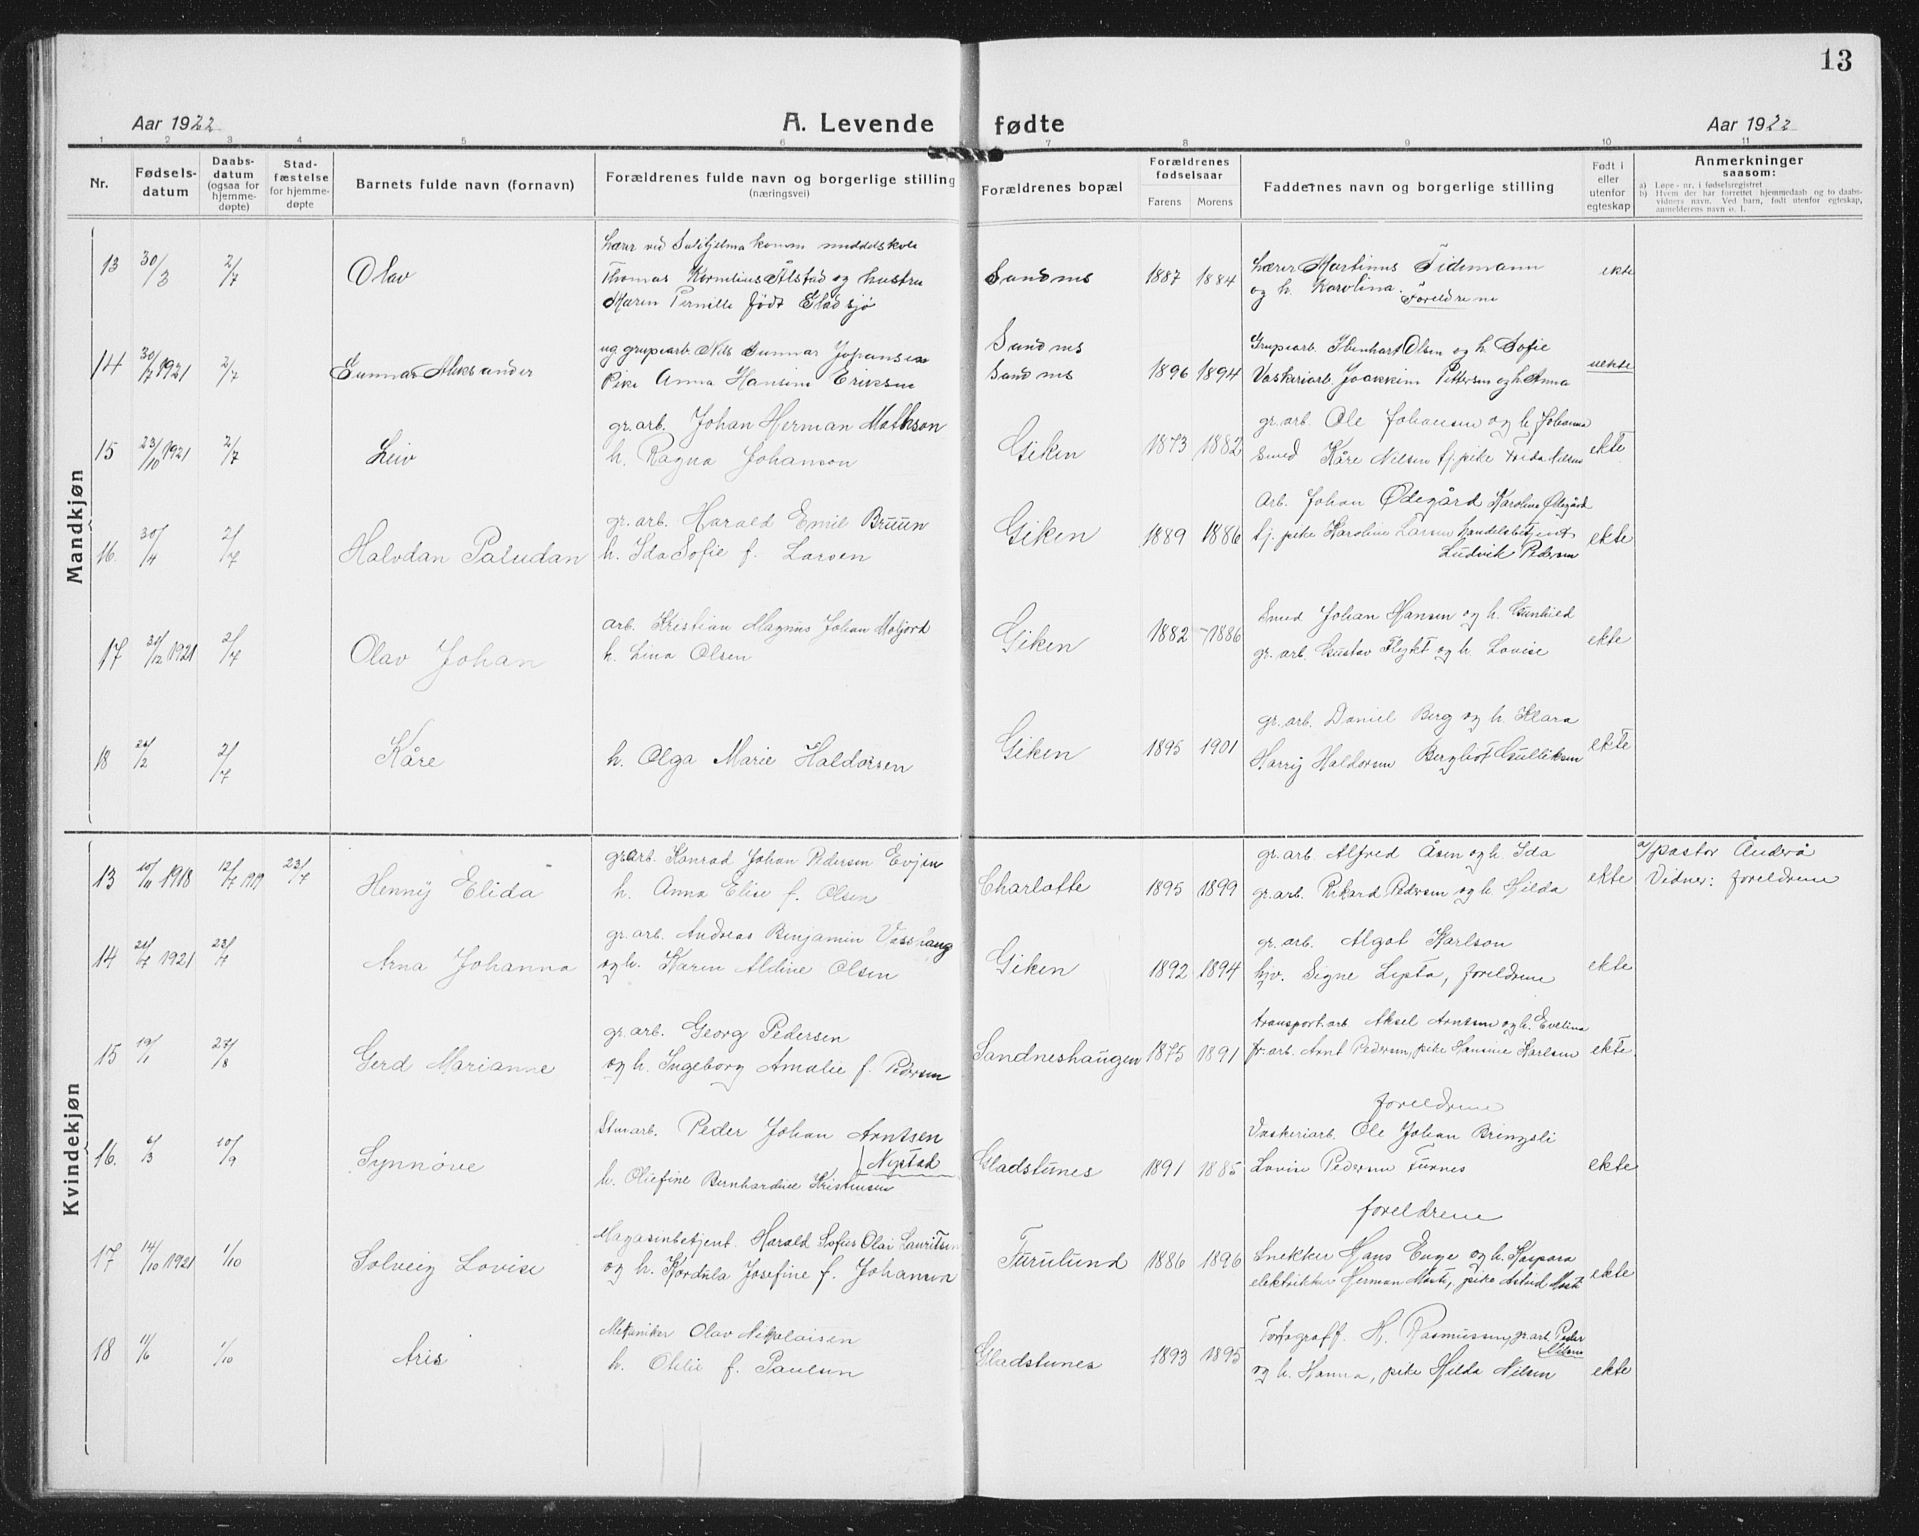 13
Aar 1922
A. Levende fødte
Aar 1922
1 2 3 4 5 6 7 8 9 10 11
Nr.
Fødsels-
datum
Daabs-
datum
(ogsaa for
hjemme-
døpte)
Stad-
fæstelse
for hjemme-
døpte
Barnets fulde navn (fornavn)
Forældrenes fulde navn og borgerlige stilling
(næringsvei)
Forældrenes bopæl
Forældrenes
fødselsaar
Farens Morens
Faddernes navn og borgerlige stilling
Født i
eller
utenfor
egteskap
Anmerkninger
saasom:
a) Løpe-nr. i fødselsregistret
b) Hvem der har forrettet hjemmedaab og to daabs-
vidners navn. Ved barn, født utenfor egteskap,
anmelderens navn o. l.
Mandkjøn
13 30/3 2/7 Olav
Lærer ved Sulitjelma komm. middelskole
Thomas Kornelius Alstad og hustru
Maren Pernille født Eladsjø
Sandnes 1887 1884
Lærer Martinus Tidemann
og h. Karolina.
Foreldrene
ekte
14 30/7 1921 2/7 Gunnar Aleksander
ug grupearb. Nils Gunnar Johansen
Pike Anna Hansine Eriksen
Sandnes
Sandnes 1896 1894
Grupearb. Ibenhart Olsen og h. Sofie
Vaskeriarb. Joakkim Pettersen og h. Anna
uekte
15 23/10 1921 2/7 Leiv
gr. arb. Johan Herman Matkson
h. Ragna Johanson
Giken 1873 1882
gr. arb. Ole Johansen og h. Johanna
Smed Kåre Nilsen tj. pike Frida Nilsen
ekte
16. 30/4 2/7 Halvdan Paludan
gr. arb. Harald Emil Bruun
h. Ida Sofie f. Larsen
Giken 1889 1886
Arb. Johan Ødegård Karoline Ødegård
tj. pike Karoline Larsen handelsbetjent
Ludvik Pedersen
ekte
17 31/12 1921 2/7 Olav Johan
arb. Kristian Magnus Johan Moljord
h. Lina Olsen
Giken 1882 - 1886
Smed Johan Hansen og h. Gunhild
gr. arb. Gustav Flykt og h. Lovise
ekte
18 26/2 2/7 Kåre
h. Olga Marie Haldorsen
Giken 1895 1901
gr. arb. Daniel Berg og h. Klara
Harry Haldorsen Berghot Gulliksen
ekte
Kvindekjøn
13 10/11 1918 12/7 1919 23/7 Henny Elida
gr. arb. Konrad Johan Pedersen Evjen
h. Anna Elise f. Olsen
Charlotte 1895 1899
gr. arb. Alfred Åsen og h. Ida
gr. arb. Rikard Pedersen og h. Hilda
ekte
a/ pastor Anderå
Vidner: foreldrene
14 21/4 1921 23/4 Arna Johanna
gr. arb. Andreas Benjamin Vasshaug
og h. Karen Aldine Olsen
Giken 1892 1894
gr. arb. Algot Karlson
hjv. Signe Lysta, foreldrene
ekte
15 19/1 27/8 Gerd Marianne
gr. arb. Georg Pedersen
og h. Ingeborg Amalie f. Pedersen
Sandneshaugen 1875 1891
transport.arb Aksel Arntsen og h. Evelina
gr. arb. Arnt Pedersen, pike Hansine Karlsen
foreldrene
ekte.
16. 6/3 10/9 Synnøve
Stuearb. Peder Johan Arntsen
(Nystad
h. Oliefine Bernhardine Kristensen
Gladstunes 1891 1885
Vaskeriarb. Ole Johan Bringsli
Lovise Pedersen Furnes
foreldrene
ekte
17 14/10 1921 1/10 Solveig Lovise
Magasinbetjent. Harald Sofus Olai Lauritsen
og h. Kordula Josefine f. Johansen
Furulund 1886 1896
Snekker Hans Enge og h. Kaspara
elektrikker Herman Mosti, pike Astrid Mosti
ekte
18 11/6 1/10 Aris
Mekaniker Olav Nikolaisen
h. Otilie f. Paulsen
Gladstunes 1893 1895
Fotograff. H. Rasmussen, gr. arb. Peder
Nilsen
og h. Hanna, pike Hilda Nilsen
ekte